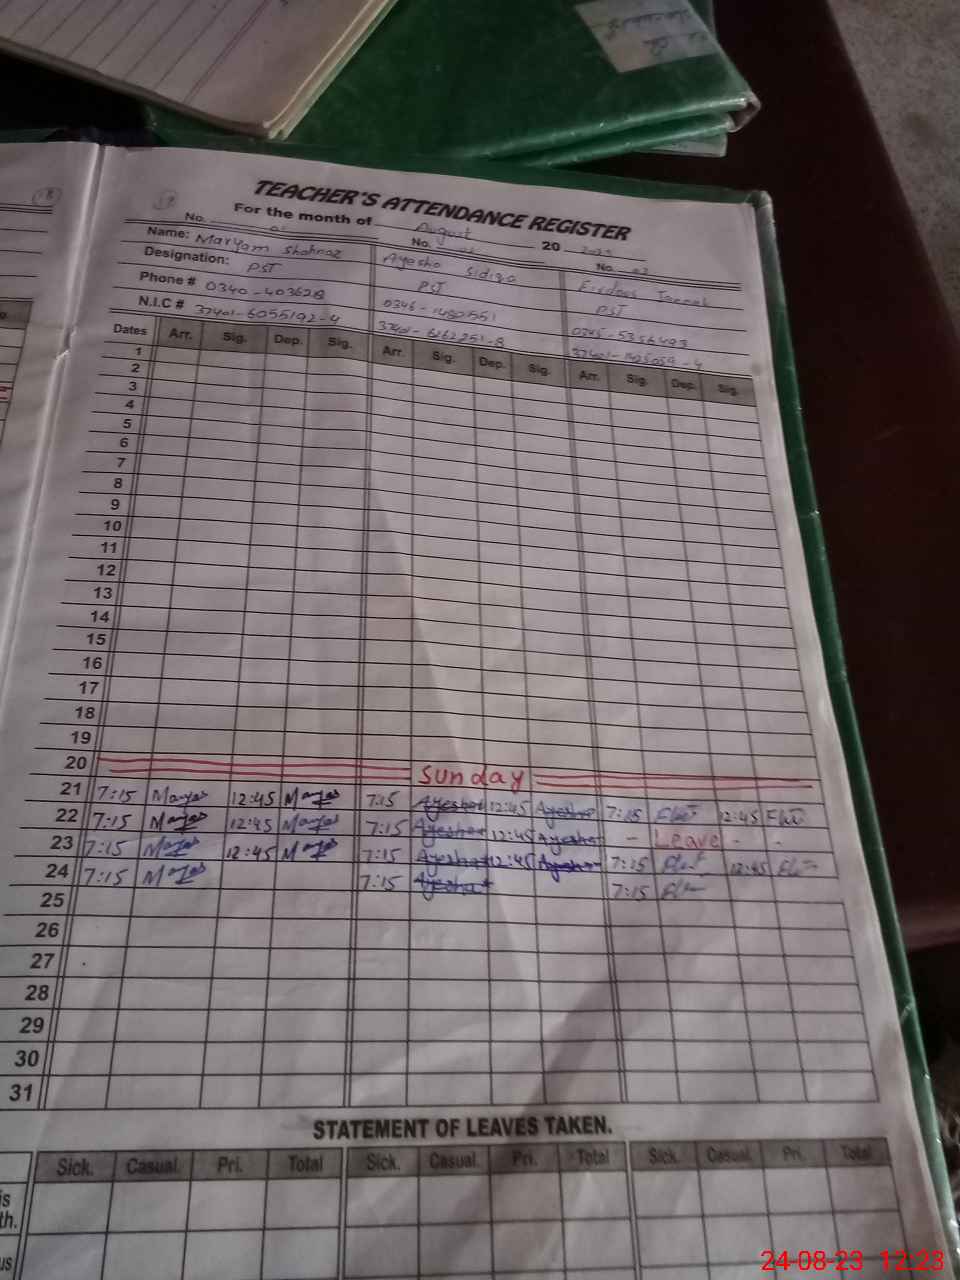 TEACHER'S ATTENDANCE REGISTER
For the month of August 20
No. No. No.
Name: Maryam Shahnaz Ayesha Sidiqa Firdous
Designation: PST PST PST
Phone # 0340-403628 0346-1480551 0345-5356493
N.I.C # 37401-6055192-4 37401-6162251-8
Dates Arr. Sig. Dep. Sig. Arr. Sig. Dep. Sig. Arr. Sig. Dep. Sig.
1
2
3
4
5
6
7
8
9
10
11
12
13
14
15
16
17
18
19
20 Sunday
21 7:15 12:45 7:15 Ayesha 12:45 Ayesha 7:15 12:45
22 7:15 12:45 7:15 Ayesha 12:45 Ayesha - Leave - -
23 7:15 12:45 7:15 Ayesha 12:45 Ayesha 7:15 12:45
24 7:15 7:15 Ayesha 7:15
25
26
27
28
29
30
31
STATEMENT OF LEAVES TAKEN.
Sick. Casual. Pri. Total Sick. Casual. Pri. Total Sick. Casual. Pri. Total
is
th.
us
24-08-23 12:23